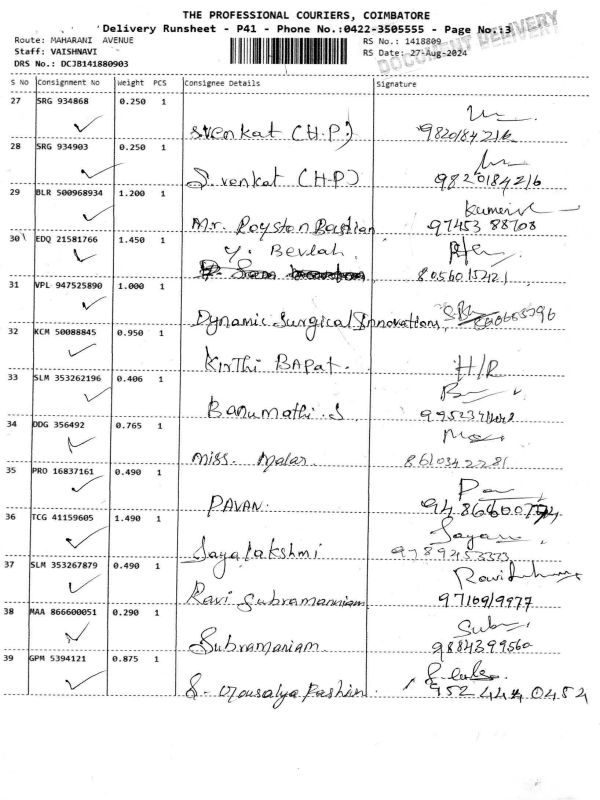 THE PROFESSIONAL COURIERS, COIMBATORE
Delivery Runsheet - P41 - Phone No.:0422-3505555 - Page No.:3
Route: MAHARANI AVENUE
RS No.: 1418809
DOCUMENT DELIVERY
Staff: VAISHNAVI
RS Date: 27-Aug-2024
DRS No.: DCJB141880903
S No Consignment No Weight PCS Consignee Details Signature
27 SRG 934868 0.250 1
Svenkat (H.P.) 9820184216
28 SRG 934903 0.250 1
S venkat (H.P) 9820184216
29 BLR 500968934 1.200 1
Mr. Roystan Bastian 97453 88708
30 EDQ 21581766 1.450 1
Y. Bevlah
8056015421
31 VPL 947525890 1.000 1
Dynamic Surgical Innovations,
32 KCM 50088845 0.950 1
Kirthi BAPAT. H/R
33 SLM 353262196 0.406 1
Banumathi .S
34 DDG 356492 0.765 1
Miss. Malar 8610342281
35 PRO 16837161 0.490 1
PAVAN.
36 TCG 41159605 1.490 1
Jayalakshmi 9789453333
37 SLM 353267879 0.490 1
Ravi Subramanniam 9710919977
38 MAA 866600051 0.290 1
Subramaniam 9884399560
39 GPM 5394121 0.875 1
952 444 0454